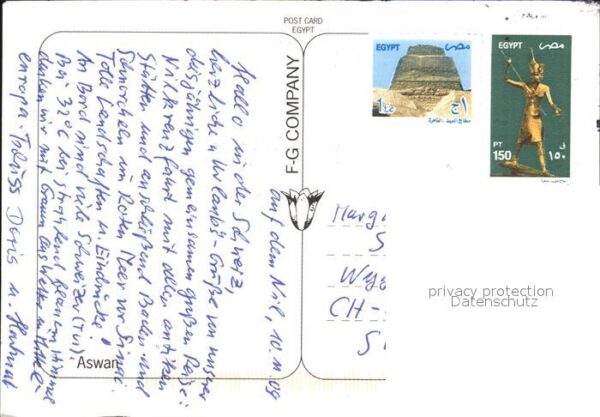 POST CARD
EGYPT
F-G COMPANY
Aswan
auf dem Nil, 10.11.09
Hallo in die Schweiz,
herzliche Urlaubs-Grüße von unserer
diesjährigen gemeinsamen großen Reise:
Nilkreuzfahrt mit allen antiken
Stätten und anschließend Baden und
Schnorcheln im Roten Meer vor Sinai.
Tolle Landschaften u. Eindrücke!
An Bord sind viele Schweizer (TUI).
Bei 32°C bei strahlend blauem Himmel
denken wir mit Graun ans Wetter in Mittel-
europa. Tschüss Doris u. Helmut
EGYPT مصر
EGYPT مصر
PT
150
١٥٠
Marg
S
Wy
CH-
S
privacy protection
Datenschutz